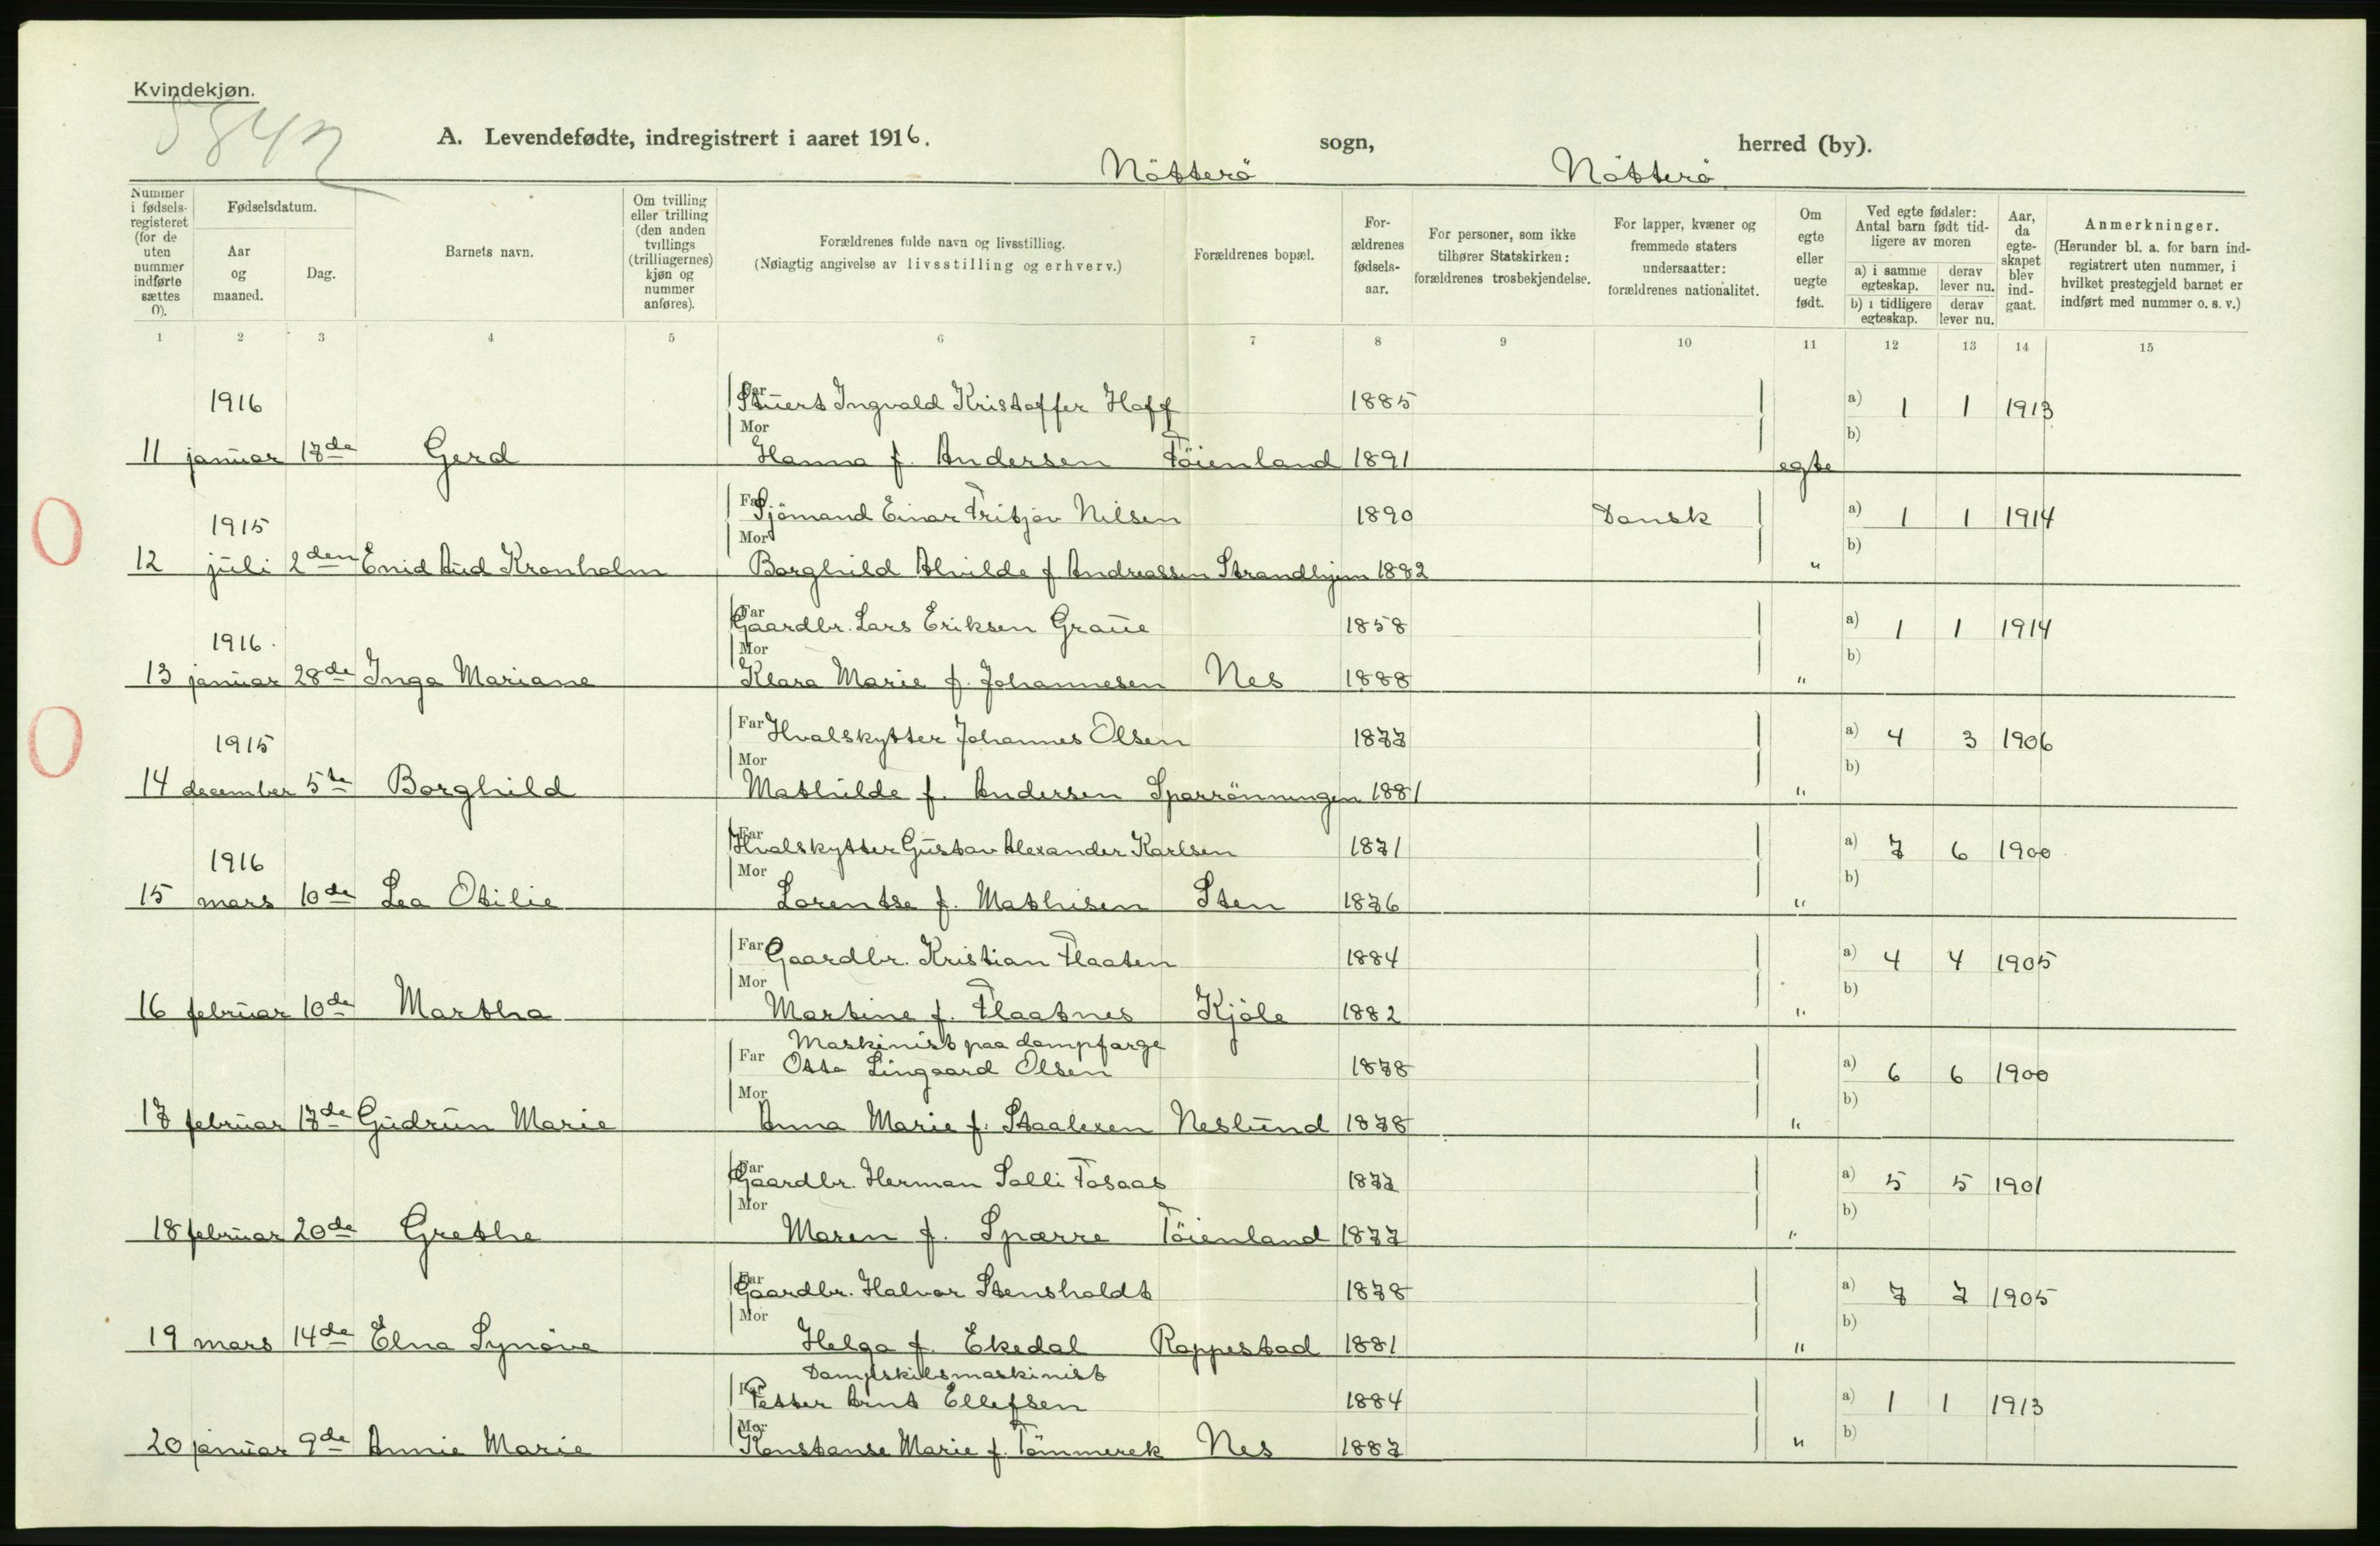 Kvindekjøn.
5842
A. Levendefødte, indregistrert i aaret 1916.
Nötterö sogn, Nötterö herred (by).
Nummer i fødsels-registeret (for de uten nummer indførte sættes 0).
Fødselsdatum.
Aar og maaned.
Dag.
Barnets navn.
Om tvilling eller trilling (den anden tvillings (trillingernes) kjøn og nummer anføres).
Forældrenes fulde navn og livsstilling.
(Nøiagtig angivelse av livsstilling og erhverv.)
Forældrenes bopæl.
For-ældrenes fødsels-aar.
For personer, som ikke tilhører Statskirken: forældrenes trosbekjendelse.
For lapper, kvæner og fremmede staters undersaatter: forældrenes nationalitet.
Om egte eller uegte født.
Ved egte fødsler: Antal barn født tid-ligere av moren
a) i samme egteskap. derav lever nu.
b) i tidligere egteskap. derav lever nu.
Aar, da egte-skapet blev ind-gaat.
Anmerkninger.
(Herunder bl. a. for barn ind-registrert uten nummer, i hvilket prestegjeld barnet er indført med nummer o. s. v.)
1 2 3 4 5 6 7 8 9 10 11 12 13 14 15
1916 Far Stuert Ingvald Kristoffer Hoff 1885 a) 1 1 1913
11 januar 17de Gerd Mor Hanna f. Andersen Töienland 1891 egte b)
1915 Far Sjömand Einar Fritjov Nilsen 1890 Dansk a) 1 1 1914
12 juli 2den Enid Aud Kronholm Mor Borghild Alvilde f Andreassen Strandhjem 1882 " b)
1916. Far Gaardbr. Lars Eriksen Graue 1858 a) 1 1 1914
13 januar 28de Inga Mariane Mor Klara Marie f. Johannesen Nes 1888 " b)
1915 Far Hvalskytter Johannes Olsen 1877 a) 4 3 1906
14 december 5te Borghild Mor Mathilde f. Andersen Sparrönningen 1881 " b)
1916 Far Hvalskytter Gustav Alexander Karlsen 1871 a) 7 6 1900
15 mars 10de Lea Otilie Mor Lorentse f. Mathisen Sten 1876 " b)
Far Gaardbr. Kristian Flaaten 1884 a) 4 4 1905
16 februar 10de Martha Mor Martine f. Flaatnes Kjöle 1882 " b)
Maskinist paa dampfarge
Far Otto Lingaard Olsen 1878 a) 6 6 1900
17 februar 17de Gudrun Marie Mor Anna Marie f. Staalesen Neslund 1878 " b)
Far Gaardbr. Herman Solli Fosaas 1872 a) 5 5 1901
18 februar 20de Grethe Mor Maren f. Sparre Töienland 1877 " b)
Far Gaardbr. Halvor Stensholdt 1878 a) 7 7 1905
19 mars 14de Elna Synöve Mor Helga f. Ekedal Roppestad 1881 " b)
Dampskibsmaskinist
Far Petter Arnt Ellefsen 1884 a) 1 1 1913
20 januar 9de Annie Marie Mor Konstanse Marie f. Tömmerek Nes 1887 " b)